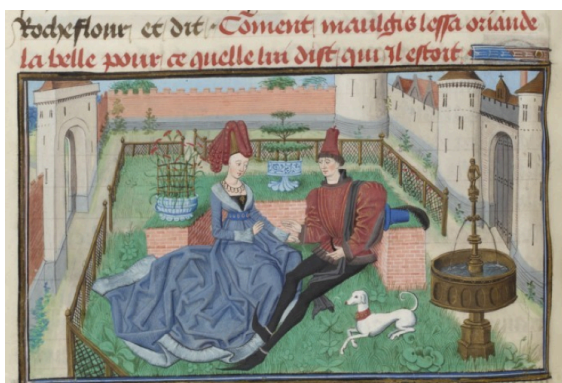 Rocheflour et dit Coment maulgis lessa oriande
la belle pour ce quelle lui dist qui Jl estoit